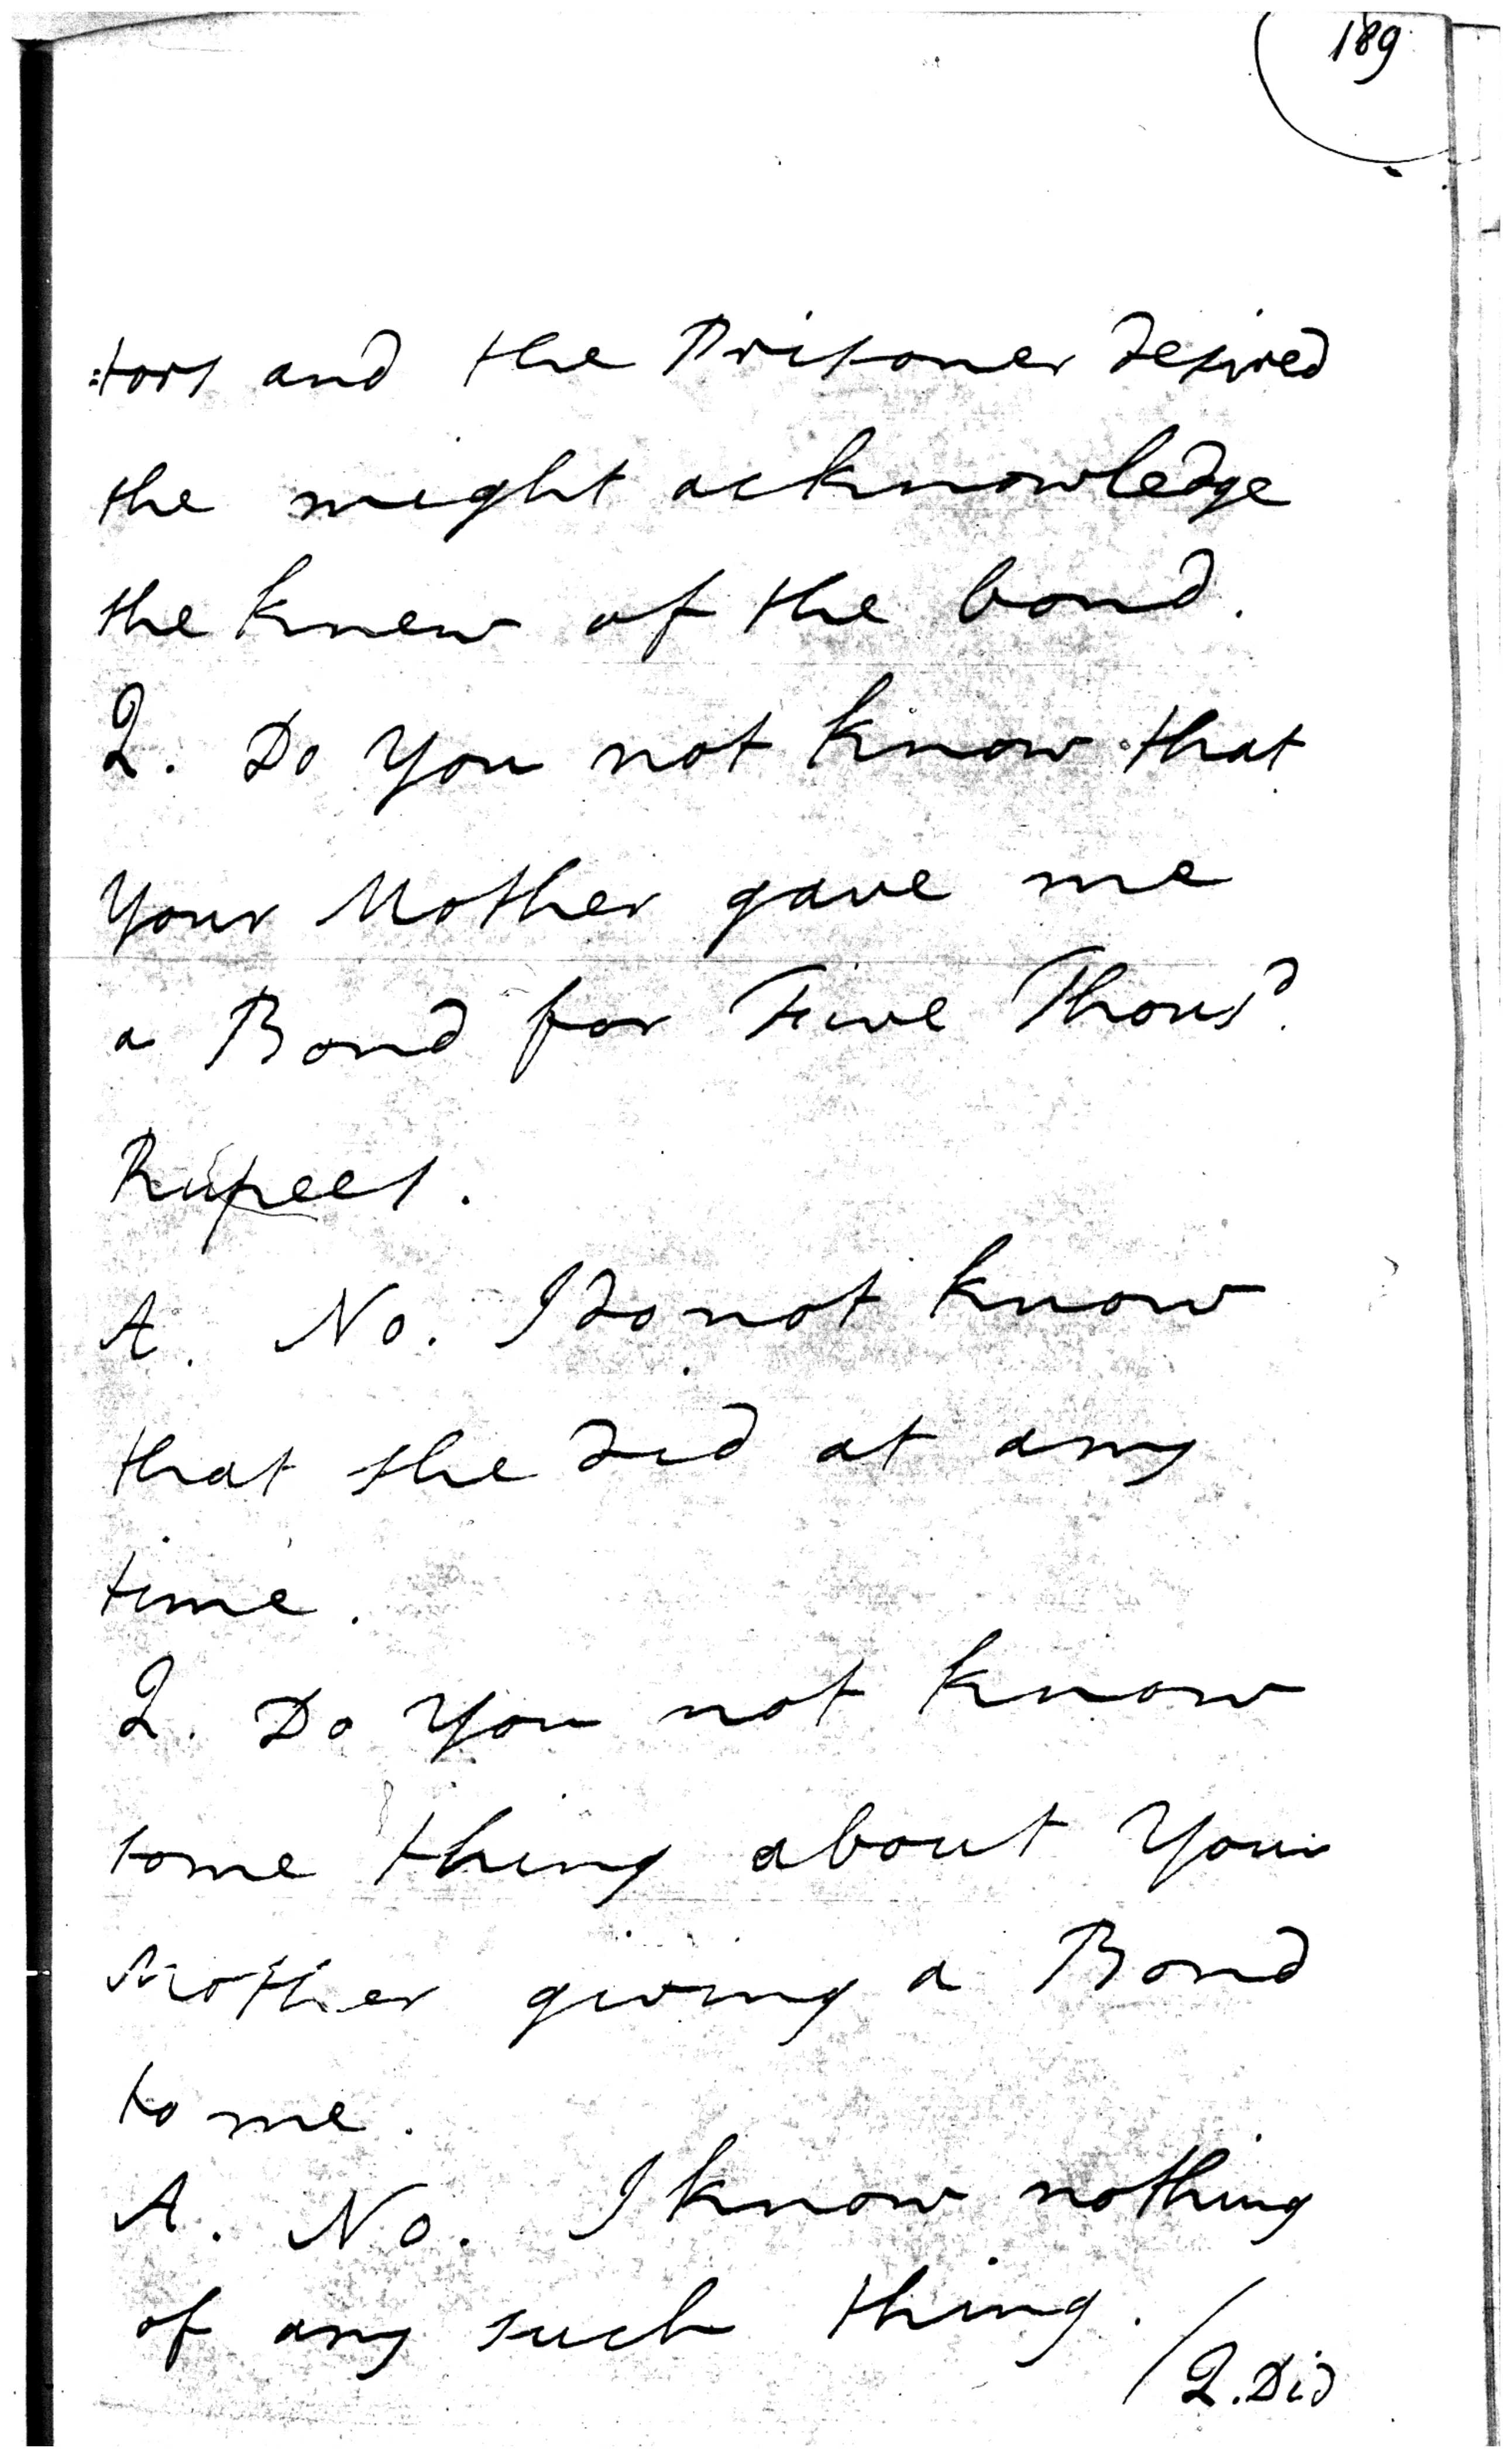 189
:tors and the Prisoner desired
she might acknowledge
she knew of the bond.
Q. Do You not know that
Your Mother gave me
a Bond for Five Thousd.
Rupees.
A. No. I do not know
that she did at any
time.
Q. Do You not know
some thing about Your
Mother giving a Bond
to me.
A. No. I know nothing
of any such thing.
/Q. Did